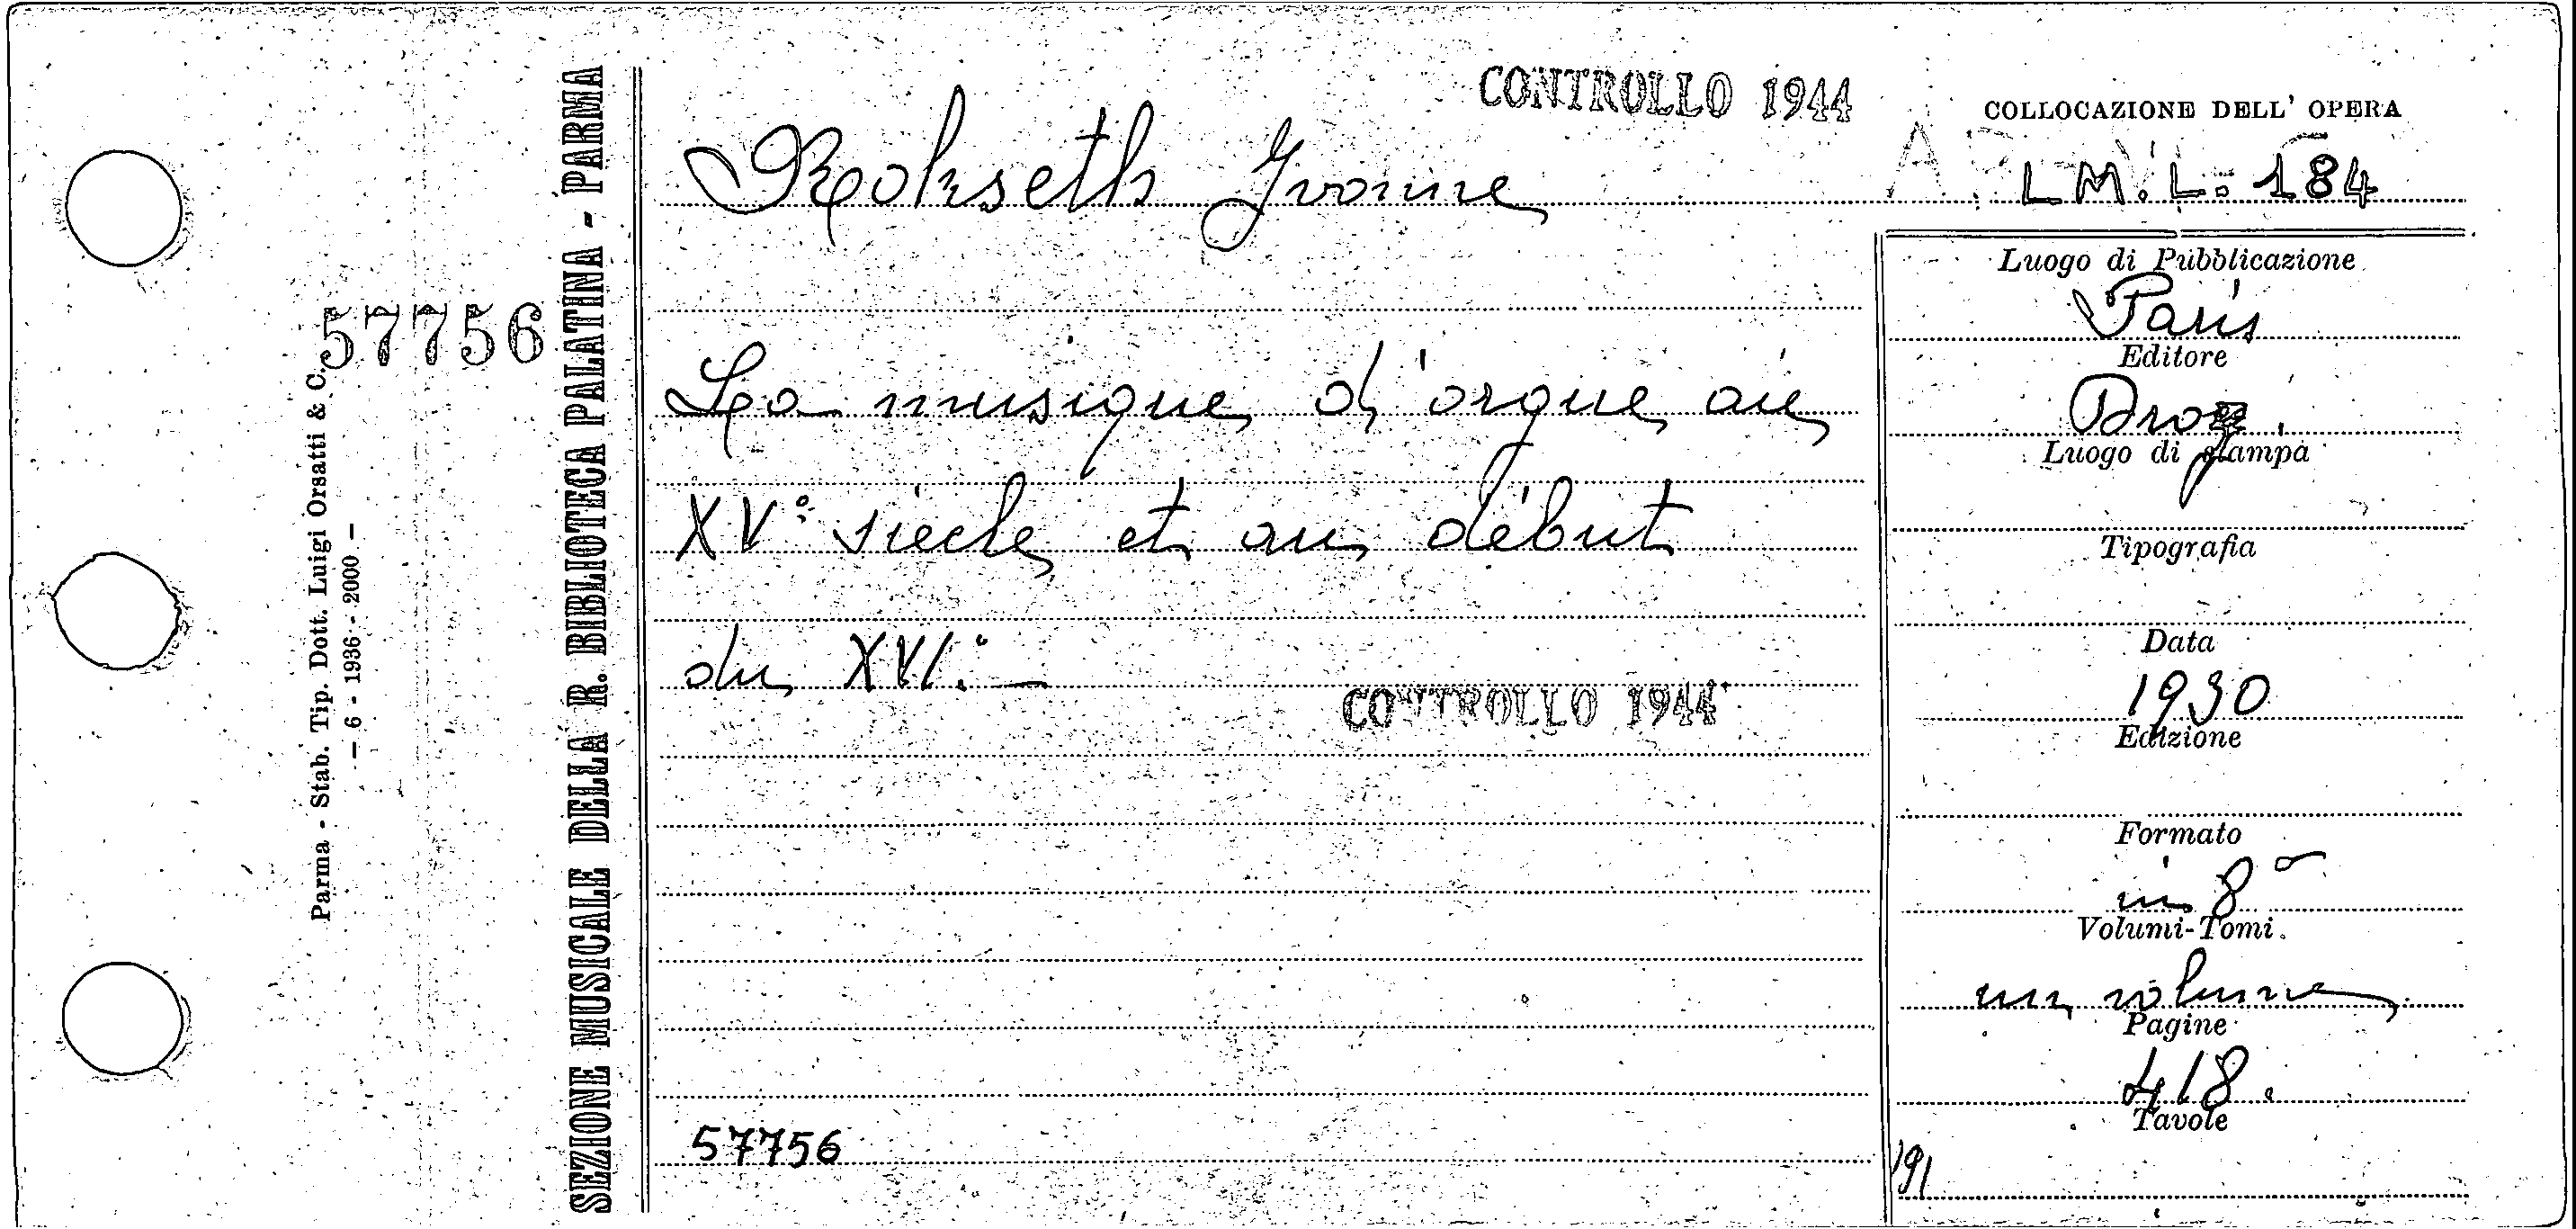 CONTROLLO 1944
COLLOCAZIONE DELL' OPERA
L M. L. 184
Rokseth Yvonne
Luogo di Pubblicazione
Paris
Editore
Droz.
Luogo di stampa
Tipografia
Data
1930
Edizione
Formato
in 8°
Volumi-Tomi
un volume
Pagine
418.
Tavole
191
La musique d'orgue au
XV° siècle et au début
du XVI.° —
CONTROLLO 1944
57756
57756
SEZIONE MUSICALE DELLA R. BIBLIOTECA PALATINA - PARMA
Parma - Stab. Tip. Dott. Luigi Orsatti & C.
— 6 - 1936 - 2000 —